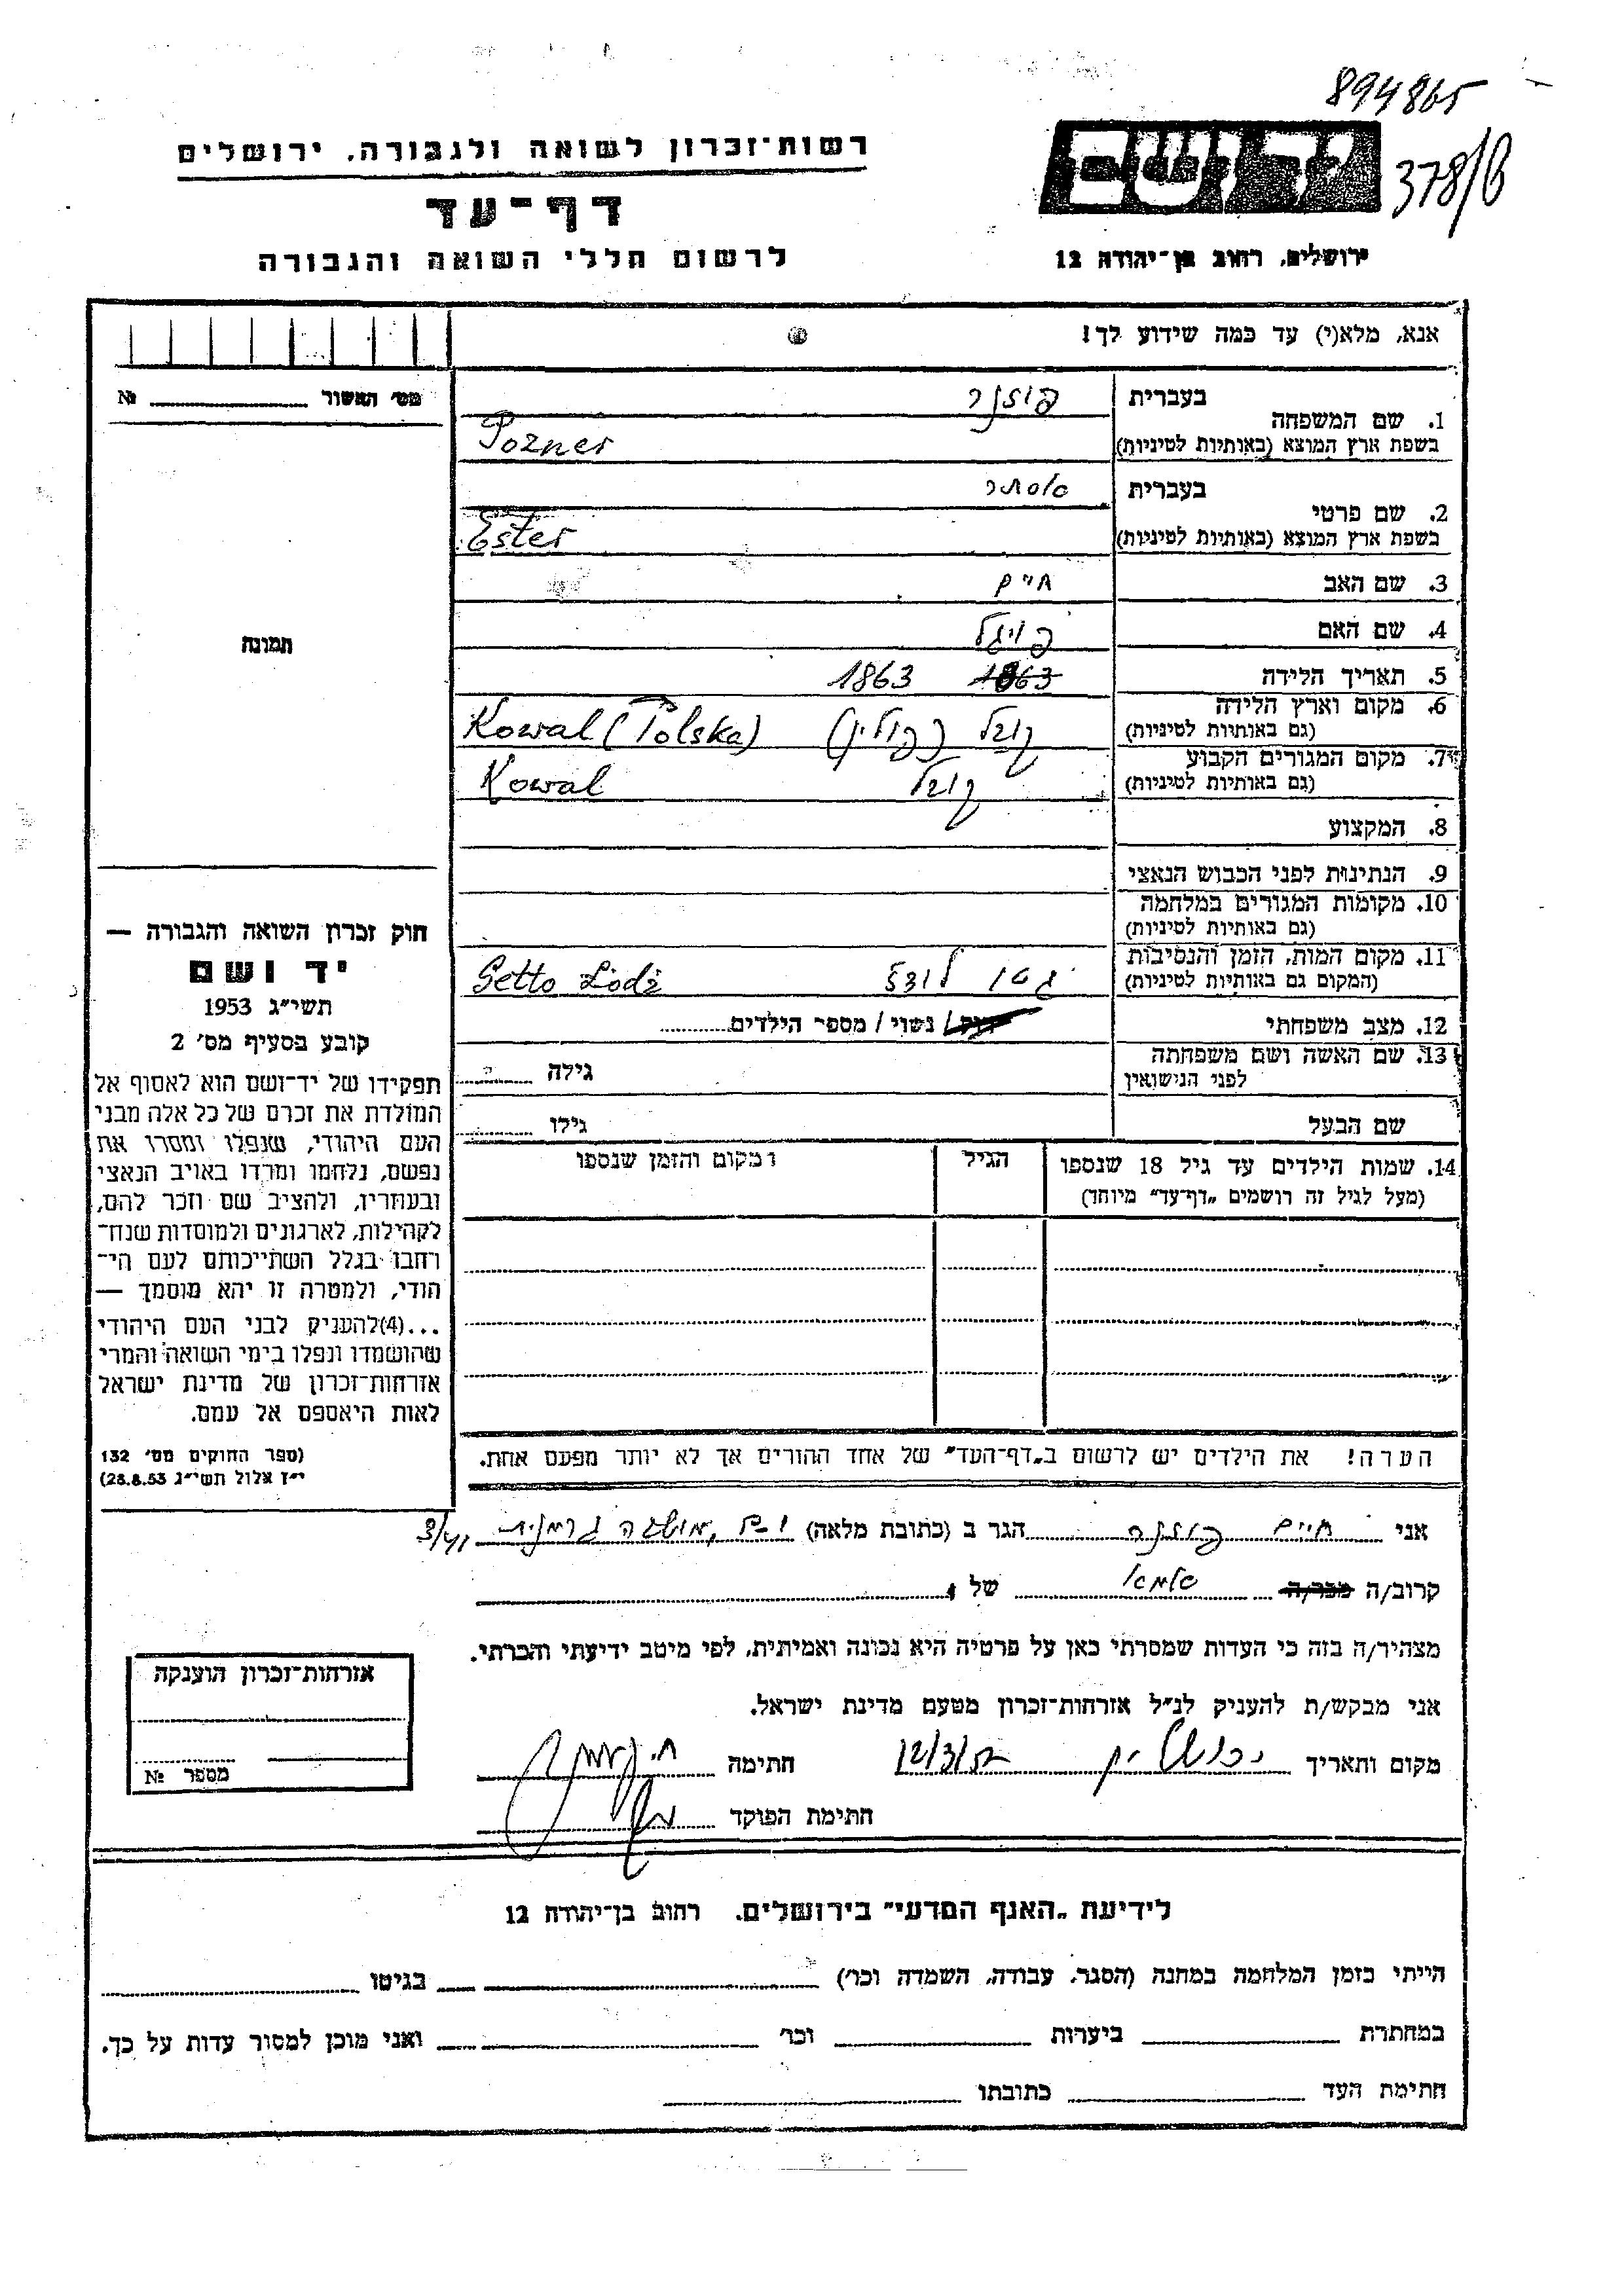 894865
רשות־זכרון לשואה ולגבורה, ירושלים
יד ושם
378/6
דף־עד
לרשום חללי השואה והגבורה
ירושלים, רחוב בן־יהודה 12
אנא, מלא(י) עד כמה שידוע לך!
מס׳ האשור № 
1. שם המשפחה
בעברית פוזנר
בשפת ארץ המוצא (באותיות לטיניות) Pozner
2. שם פרטי
בעברית אסתר
בשפת ארץ המוצא (באותיות לטיניות) Ester
3. שם האב חיים
4. שם האם פויגל
5. תאריך הלידה 1863 1863
6. מקום וארץ הלידה
(גם באותיות לטיניות) קובל (פולין) Kowal (Polska)
7. מקום המגורים הקבוע
(גם באותיות לטיניות) קובל Kowal
8. המקצוע
9. הנתינות לפני הכבוש הנאצי
10. מקומות המגורים במלחמה
(גם באותיות לטיניות)
11. מקום המות, הזמן והנסיבות
(המקום גם באותיות לטיניות) גטו לודז Getto Łódź
12. מצב משפחתי רווק / נשוי / מספר הילדים
13. שם האשה ושם משפחתה
לפני הנישואין גילה
שם הבעל גילו
14. שמות הילדים עד גיל 18 שנספו
(מעל לגיל זה רושמים „דף־עד״ מיוחד)
הגיל
מקום והזמן שנספו
הערה! את הילדים יש לרשום ב„דף־העד״ של אחד ההורים אך לא יותר מפעם אחת.
תמונה
חוק זכרון השואה והגבורה —
יד ושם
תשי״ג 1953
קובע בסעיף מס׳ 2
תפקידו של יד־ושם הוא לאסוף אל
המולדת את זכרם של כל אלה מבני
העם היהודי, שנפלו ומסרו את
נפשם, נלחמו ומרדו באויב הנאצי
ובעוזריו, ולהציב שם וזכר להם,
לקהילות, לארגונים ולמוסדות שנח־
רחבו בגלל השתייכותם לעם הי־
הודי, ולמטרה זו יהא מוסמך —
...(4)להעניק לבני העם היהודי
שהושמדו ונפלו בימי השואה והמרי
אזרחות־זכרון של מדינת ישראל
לאות היאספם אל עמם.
(ספר החוקים מס׳ 132
י״ז אלול תשי״ג 28.8.53)
אני חיים פוזנר הגר ב (כתובת מלאה) מושבה גרמנית 3/41
קרוב/ה מכר/ה של
מצהיר/ה בזה כי העדות שמסרתי כאן על פרטיה היא נכונה ואמיתית, לפי מיטב ידיעתי והכרתי.
אני מבקש/ת להעניק לנ״ל אזרחות־זכרון מטעם מדינת ישראל.
מקום ותאריך ירושלים חתימה
חתימת הפוקד
אזרחות־זכרון הוענקה
מספר №
לידיעת „האגף המדעי״ בירושלים, רחוב בן־יהודה 12
הייתי בזמן המלחמה במחנה (הסגר, עבודה, השמדה וכו׳) בגיטו
במחתרת ביערות וכו׳ ואני מוכן למסור עדות על כך.
חתימת העד כתובתו